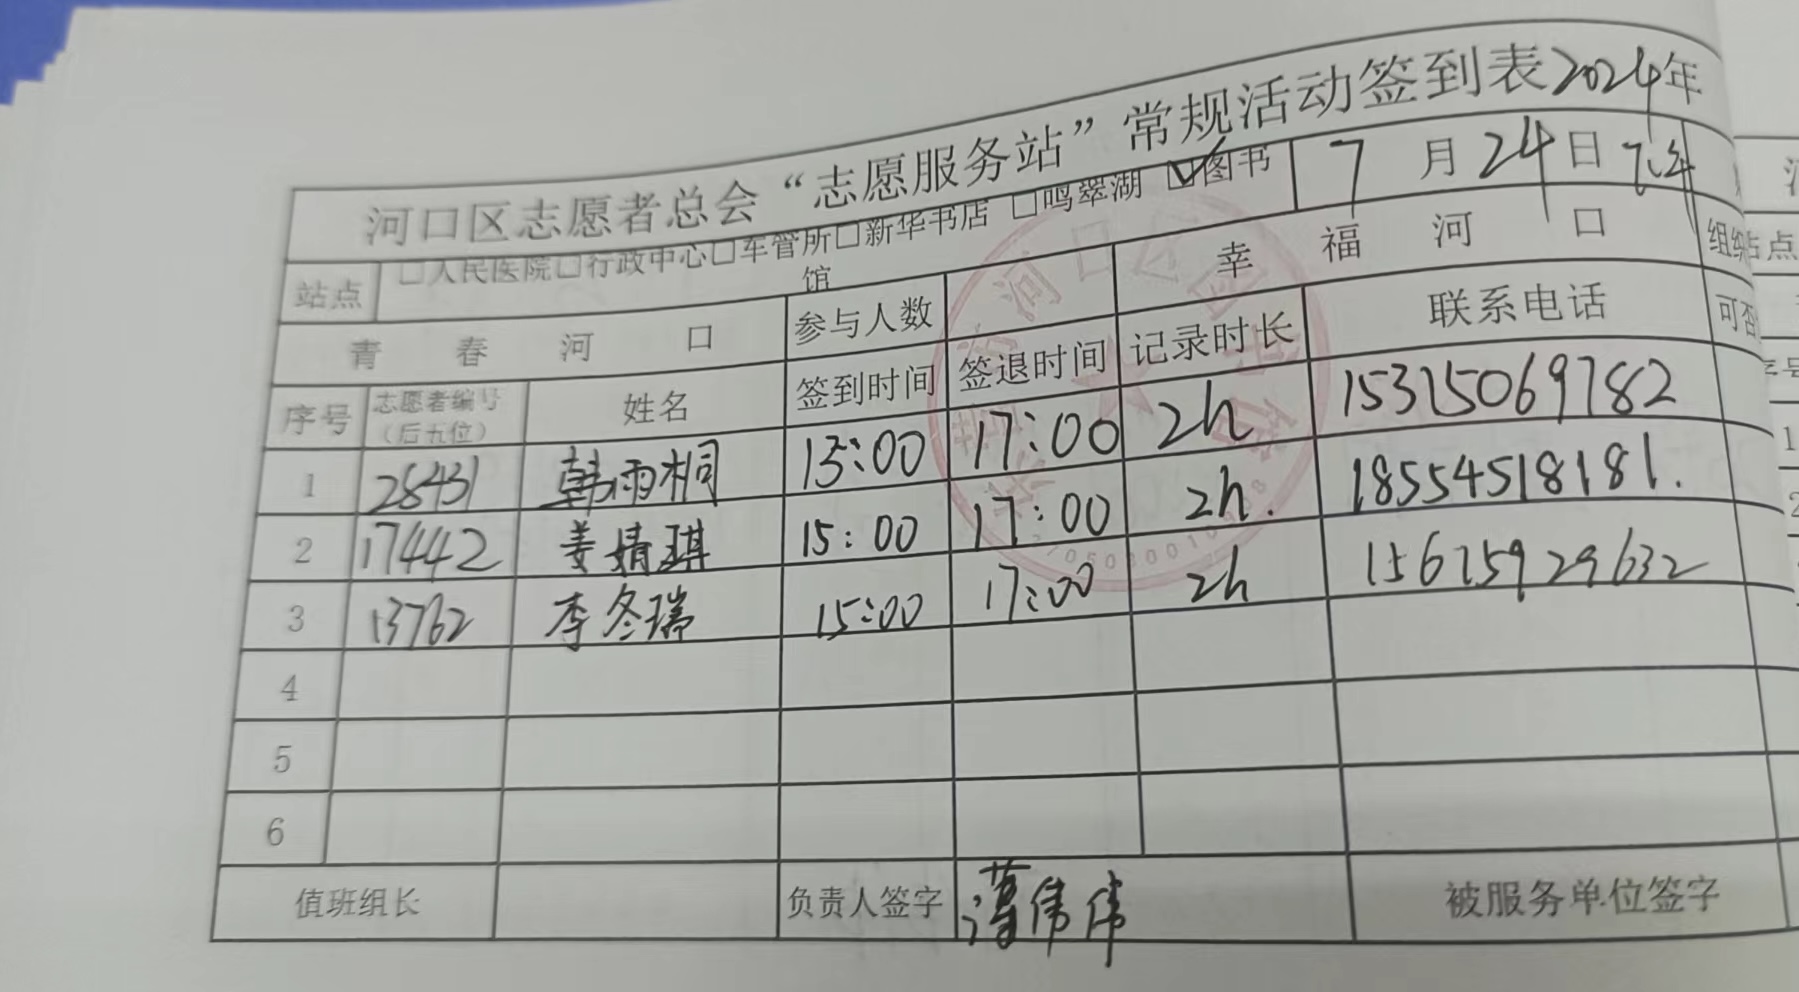 河口区志愿者总会“志愿服务站”常规活动签到表2024年
站点 □人民医院□行政中心□车管所□新华书店 □鸣翠湖 ☑图书馆 7月24日下午
青春河口 参与人数 幸福河口
序号 志愿者编号（后五位） 姓名 签到时间 签退时间 记录时长 联系电话 可否
1 28431 韩雨桐 15:00 17:00 2h 15315069782
2 17442 姜婧琪 15:00 17:00 2h. 18554518181.
3 13762 李冬瑞 15:00 17:00 2h 15615929632
4
5
6
值班组长 负责人签字 伟伟 被服务单位签字